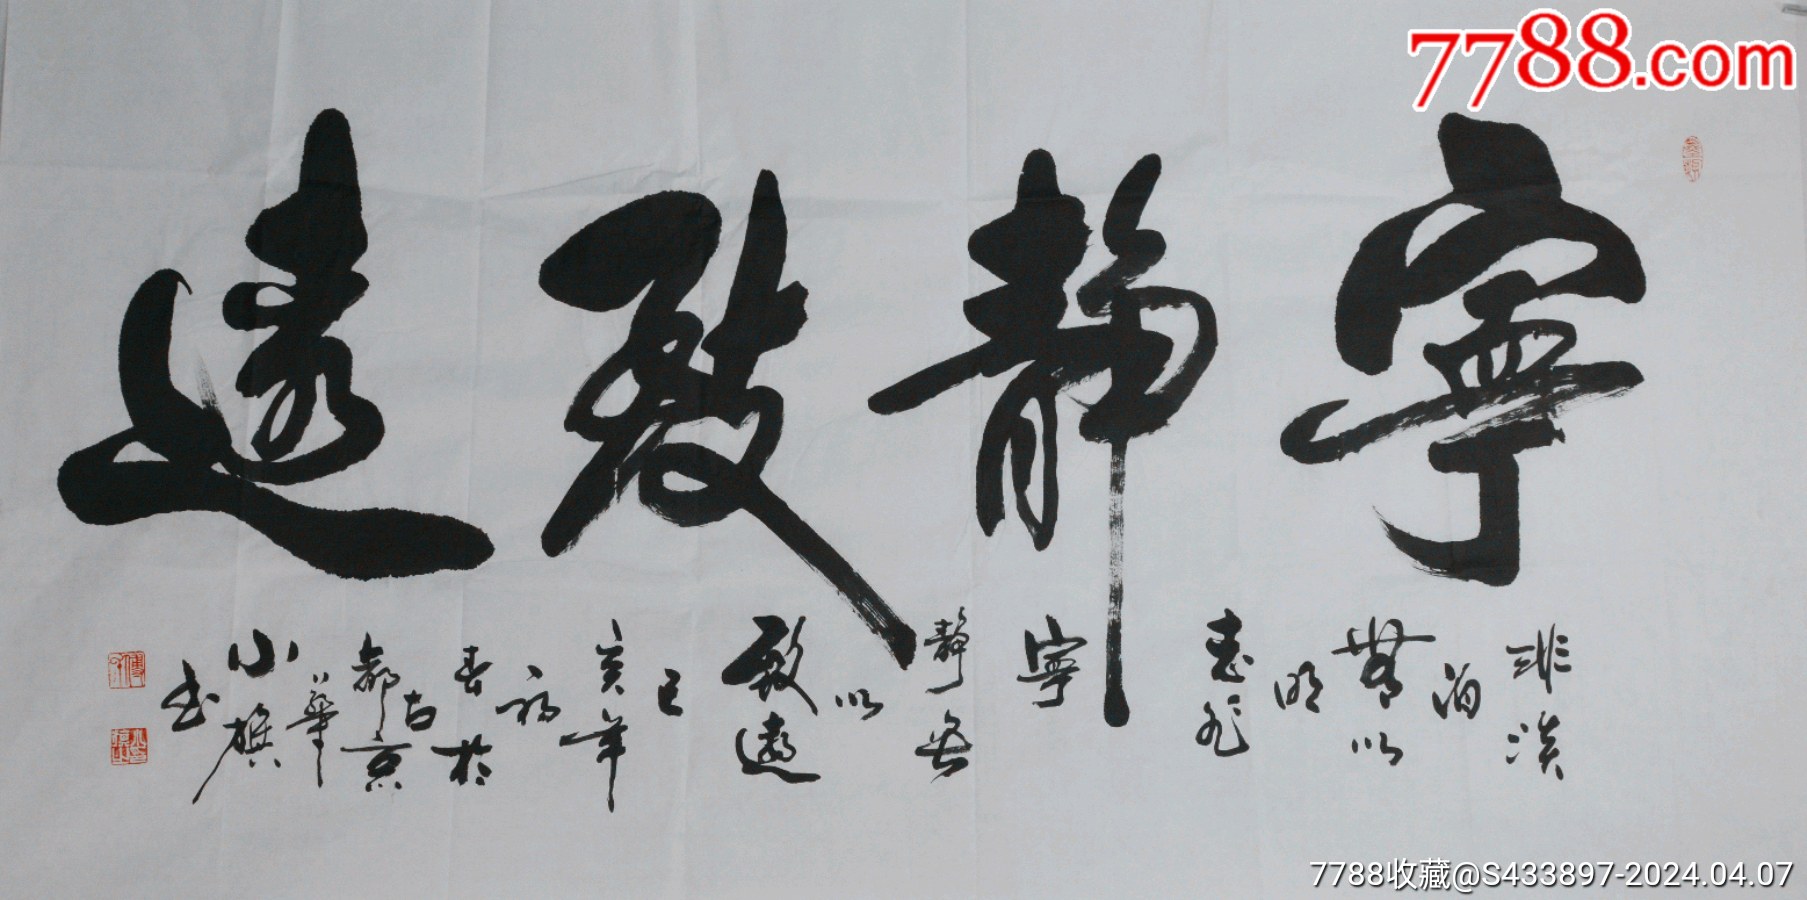 7788.com
寧靜致遠
非淡
泊
無以
明
志非
寧
靜無
以
致遠
己
亥年
初
春於
古
都京
華
小
書
7788收藏@S433897-2024.04.07